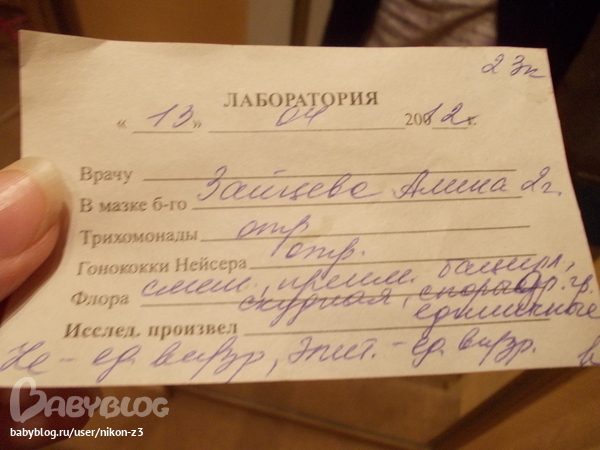 23к
ЛАБОРАТОРИЯ
« 13 » 04 200 12 г.
Врачу
В мазке б-го Зайцева Алина 2г.
Трихомонады отр
Гонококки Нейсера отр.
Флора смеш., преим. бацилл,
скудная,
единичные
Исслед. произвел
Le - ед в п/зр, Эпит. - ед в п/зр.
BABYBLOG
babyblog.ru/user/nikon-z3